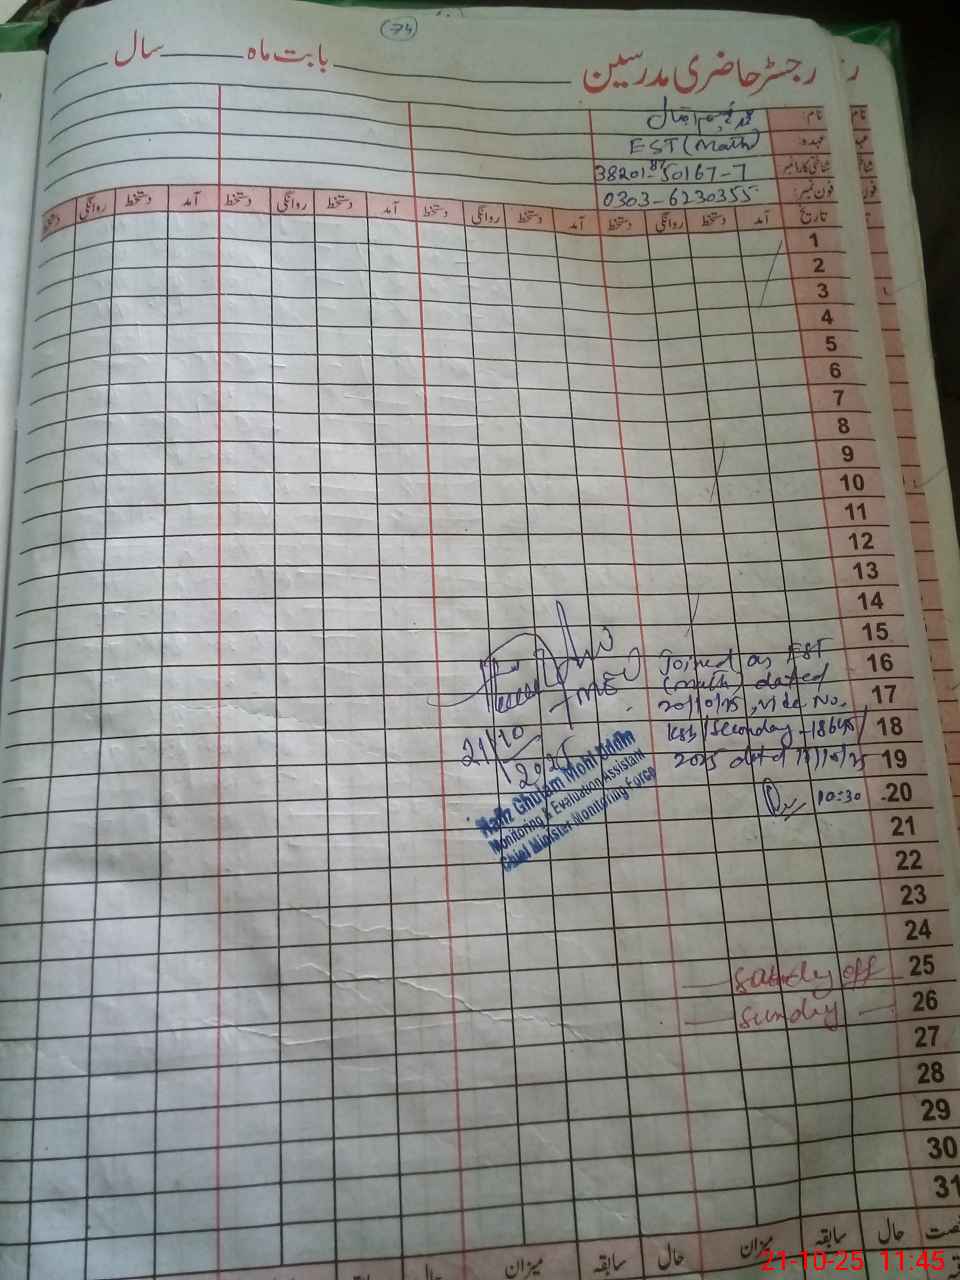 74
رجسٹر حاضری مدرسین ــــ بابت ماہ ــــ سال ــــ
نام:
عہدہ: EST (Math)
شناختی کارڈ نمبر: 38201-50167-7
فون نمبر: 0303-6230355
تاریخ آمد دستخط روانگی دستخط آمد دستخط روانگی دستخط آمد دستخط روانگی دستخط آمد دستخط روانگی دستخط
1
2
3
4
5
6
7
8
9
10
11
12
13
14
15
16
17
18
19
20
21
22
23
24
25
26
27
28
29
30
31
Joined as EST
(Math) dated
20/10/25, vide No.
/Seconday-
2025 dated
10:30
MEA
21/10/2025
Hafiz Ghulam Mohi Uddin
Monitoring & Evaluation Assistant
Chief Minister Monitoring Force
Saturday off
Sunday
حال سابقہ میزان حال سابقہ میزان حال
21-10-25 11:45